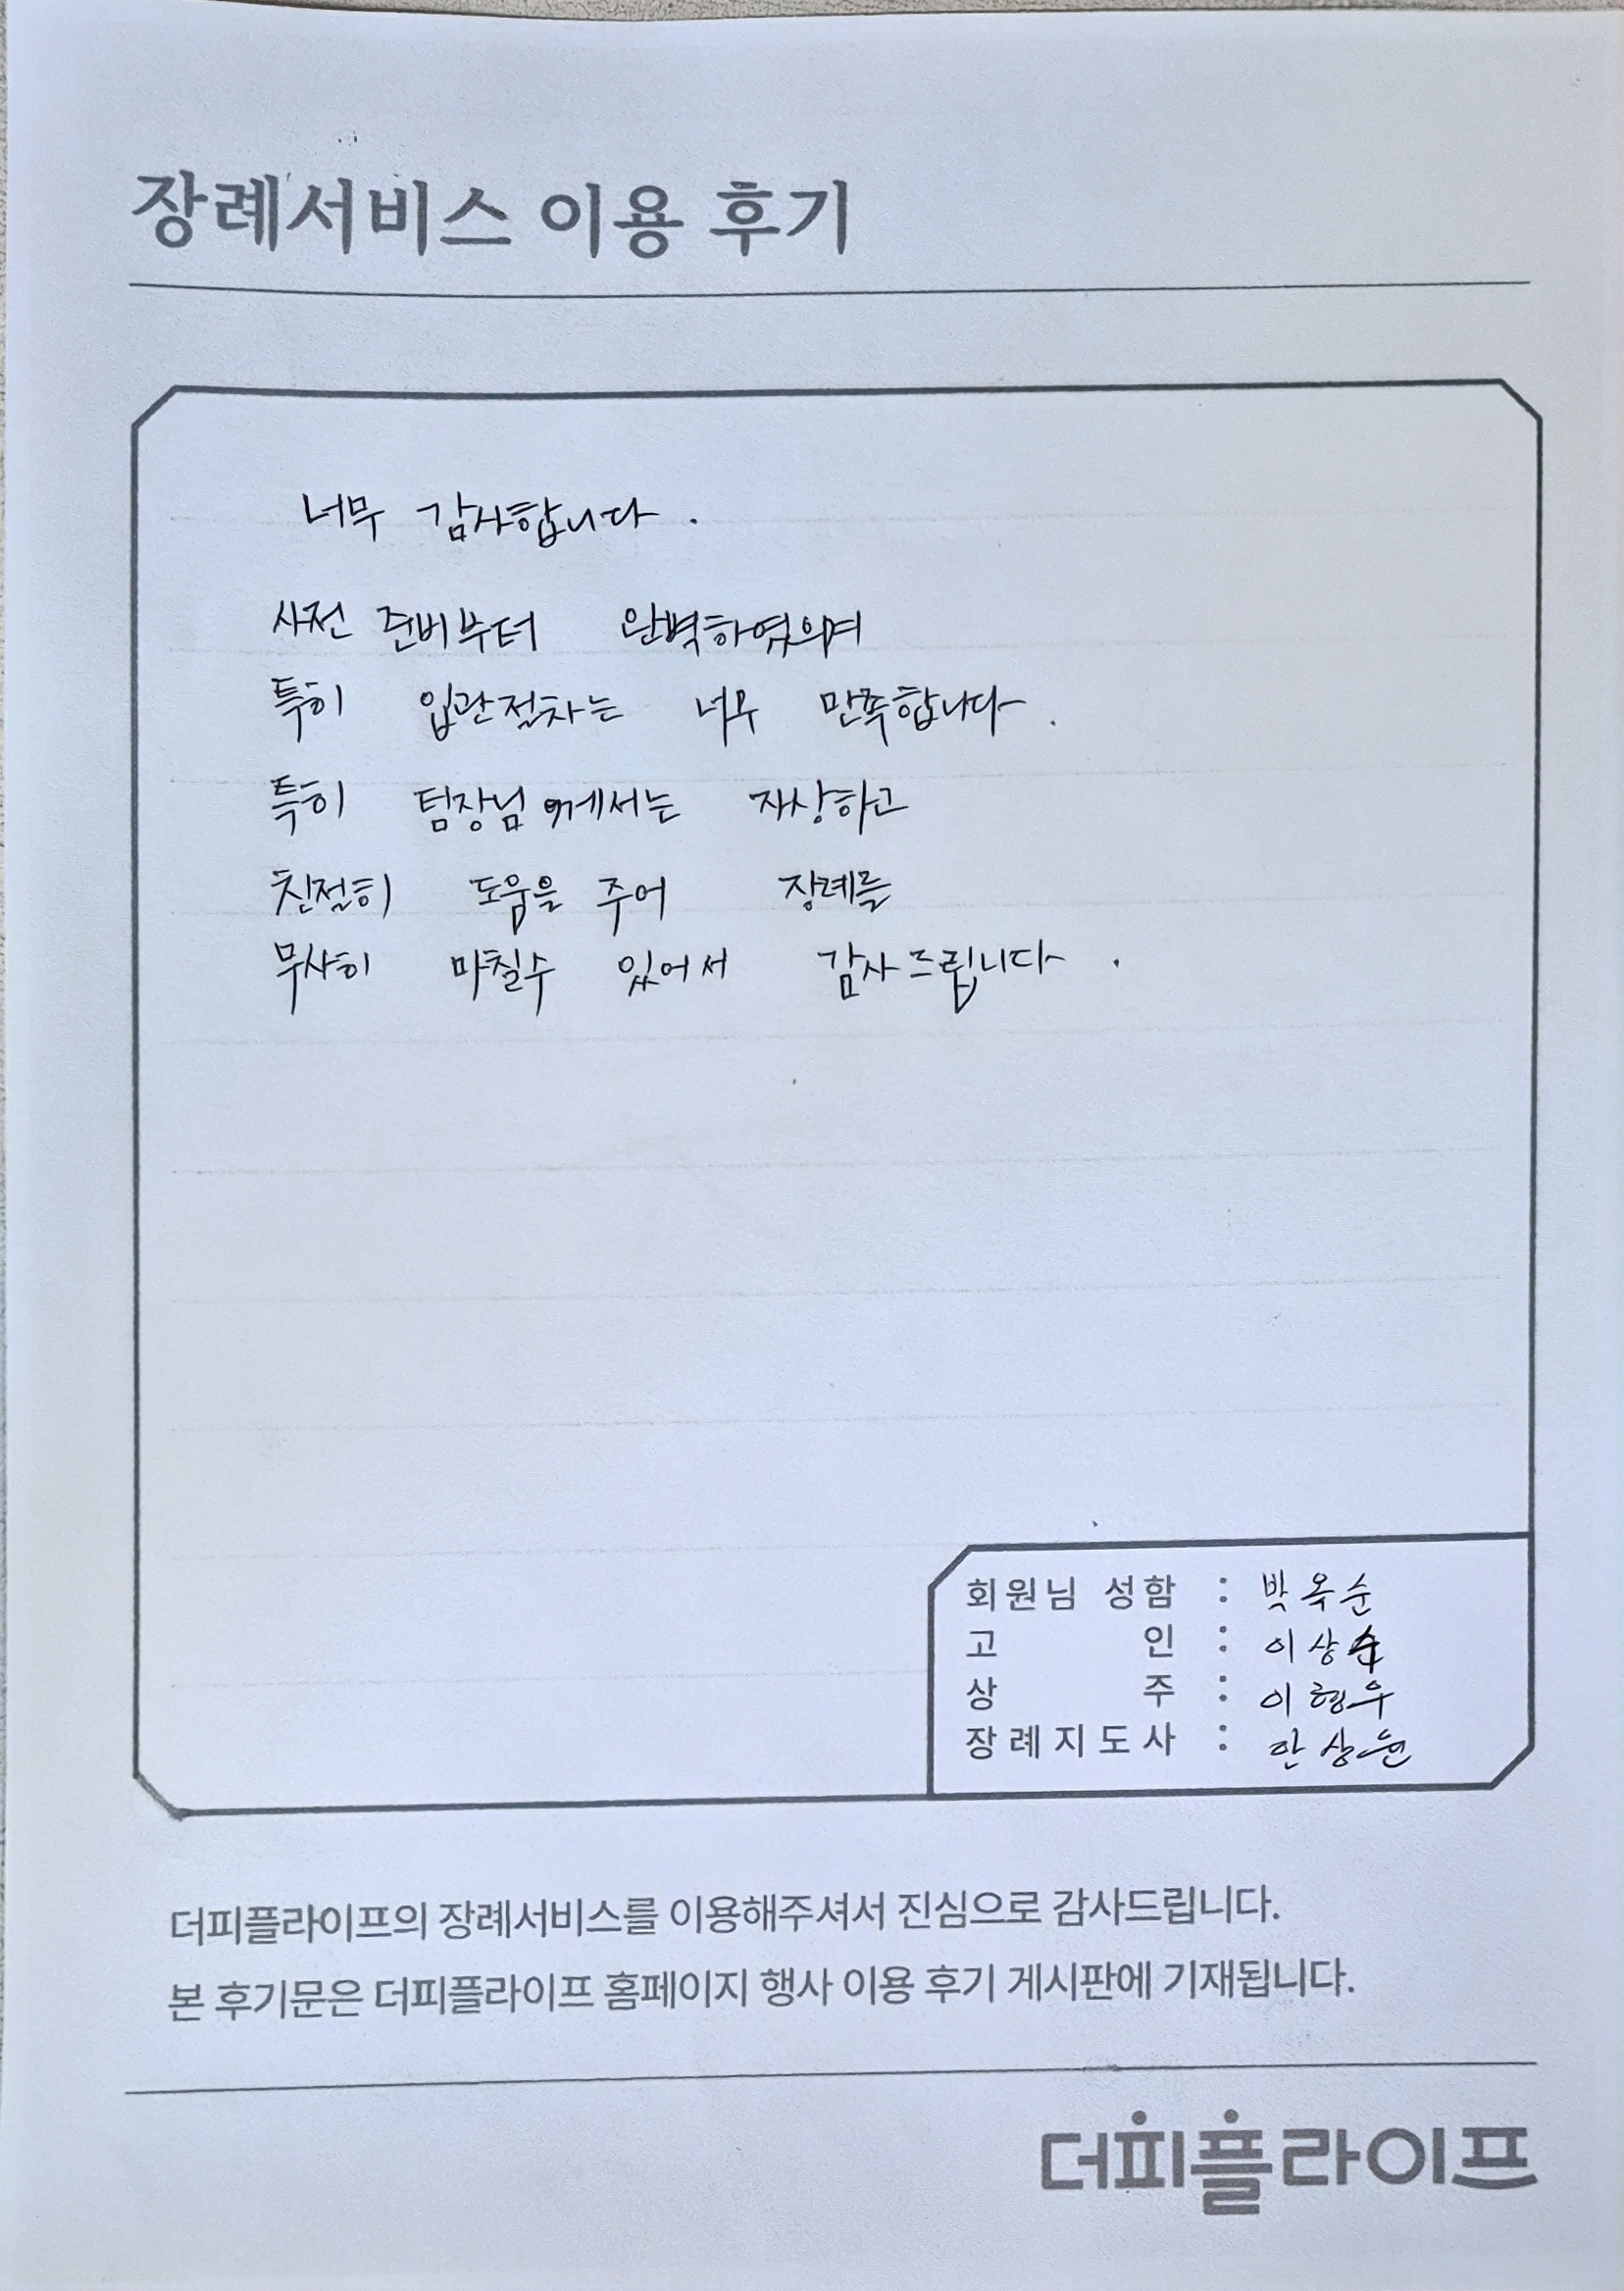 장례서비스 이용 후기
너무 감사합니다.
사전 준비부터 완벽하였으며
특히 입관절차는 너무 만족합니다.
특히 팀장님께서는 자상하고
친절히 도움을 주어 장례를
무사히 마칠수 있어서 감사드립니다.
회원님 성함 : 박옥순
고 인 : 이상
상 주 : 이형우
장례지도사 : 안상현
더피플라이프의 장례서비스를 이용해주셔서 진심으로 감사드립니다.
본 후기문은 더피플라이프 홈페이지 행사 이용 후기 게시판에 기재됩니다.
더피플라이프